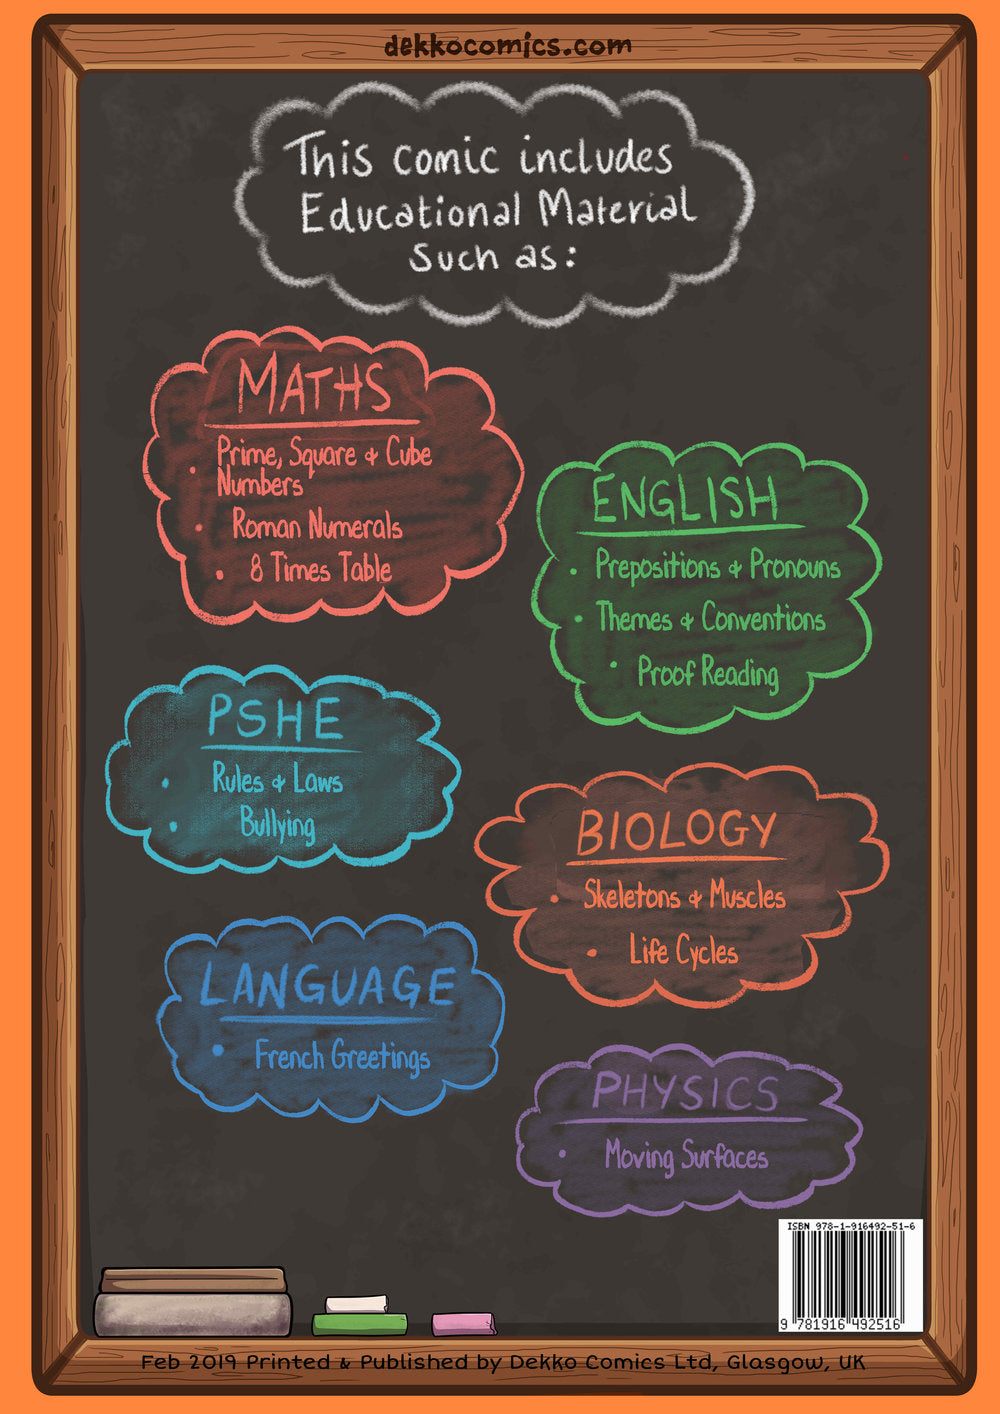 dekkocomics.com
This comic includes
Educational Material
Such as:
MATHS
• Prime, Square & Cube
Numbers
• Roman Numerals
• 8 Times Table
ENGLISH
• Prepositions & Pronouns
• Themes & Conventions
• Proof Reading
PSHE
• Rules & Laws
• Bullying
BIOLOGY
• Skeletons & Muscles
• Life Cycles
LANGUAGE
• French Greetings
PHYSICS
• Moving Surfaces
ISBN 978-1-916492-51-6
9 781916 492516
Feb 2019 Printed & Published by Dekko Comics Ltd, Glasgow, UK